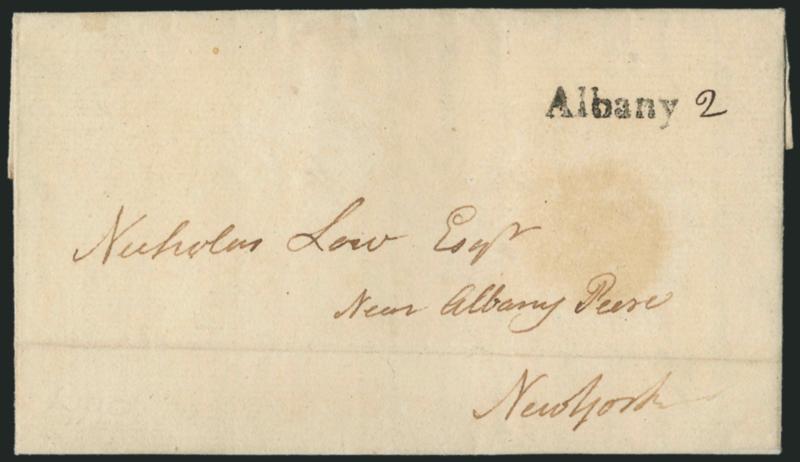 Albany 2
Nicholas Low Esqr
Near Albany Peere
New York